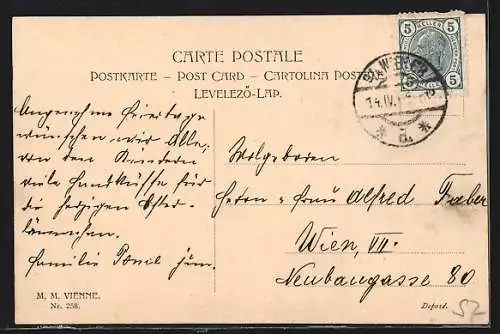 CARTE POSTALE
POSTKARTE – POST CARD – CARTOLINA POSTALE
LEVELEZŐ-LAP.
5 HELLER 5
5 5
14.IV.
* a *
Angenehme Feiertage
wünschen wir Alle,
von den Kindern
viele Handküsse für
die herzigen Oster-
lämmchen.
Familie jun.
Wolgeboren
Herrn u. Frau Alfred Faber
Wien, VII.
Neubaugasse 80
M. M. VIENNE.
Nr. 258.
Deposé.
SZ